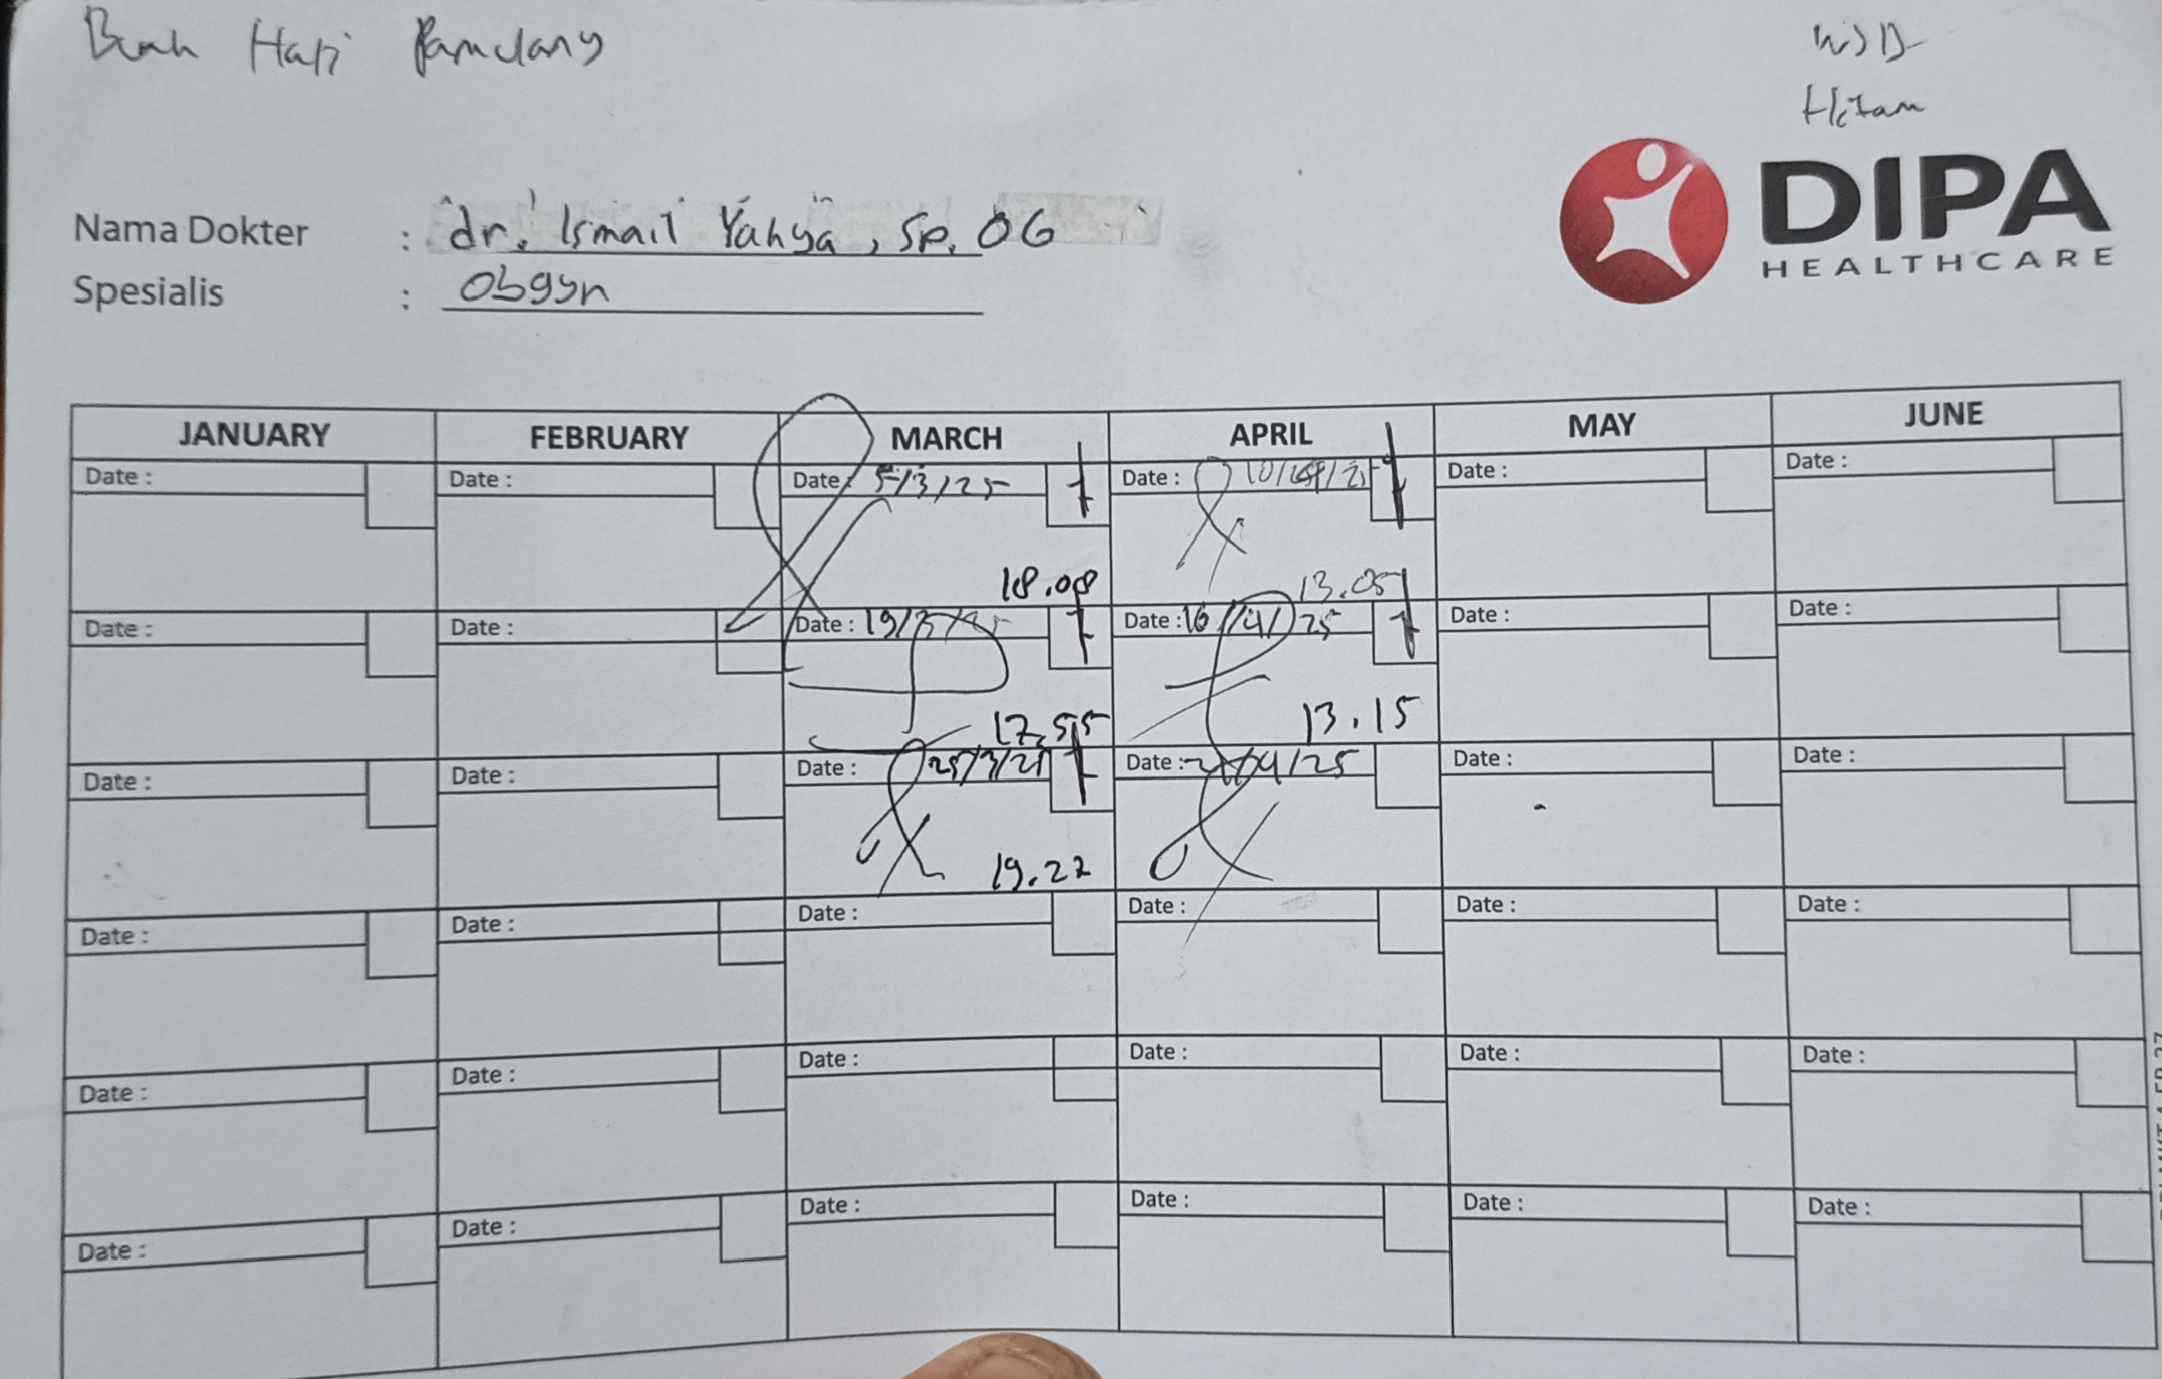 Buah Hati Pamulang
WSD
Hitam
DIPA
HEALTHCARE
Nama Dokter : dr. Ismail Yahya, Sp. OG
Spesialis : Obgyn
JANUARY FEBRUARY MARCH APRIL MAY JUNE
Date : Date : Date : 5/3/25 Date : 10/04/25 Date : Date :
18.08 13.05
Date : Date : Date : 19/3/25 Date : 16/4/25 Date : Date :
17.55 13.15
Date : Date : Date : 25/3/25 Date : /04/25 Date : Date :
19.22
Date : Date : Date : Date : Date : Date :
Date : Date : Date : Date : Date : Date :
Date : Date : Date : Date : Date : Date :